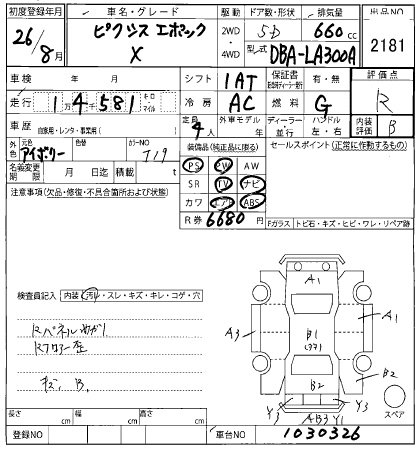 初度登録年月 車名・グレード 駆動 ドア数・形状 排気量 出品NO
26/8月 ピクシス エポック X 2WD・4WD 5D 660cc 2181
型式 DBA-LA300A
車検 年 月 シフト 1AT 保証書 有・無 評価点
走行 1万4千581 キロ・マイル 冷房 AC 燃料 G R
車歴 自家用・レンタ・事業用( ) 定員 4人 外車モデル 年 ディーラー・並行 ハンドル 左・右 内装評価 B
外色 元色 アイボリー 色替 カラーNO T19 装備品(純正品に限る) セールスポイント(正常に作動するもの)
名義変更期限 月 日迄 積載 t PS PW AW
注意事項(欠品・修復・不具合箇所および状態) SR TV ナビ
カワ エアB ABS
R券 6680円
Fガラス トビ石・キズ・ヒビ・ワレ・リペア跡
検査員記入 内装(汚レ・スレ・キズ・キレ・コゲ・穴
A1
A3 B1 A1
B2 B2
Y3 Y3
AB3 Y1
キズ、B.
スペア
長さ cm 幅 cm 高さ cm
登録NO 車台NO 1030326